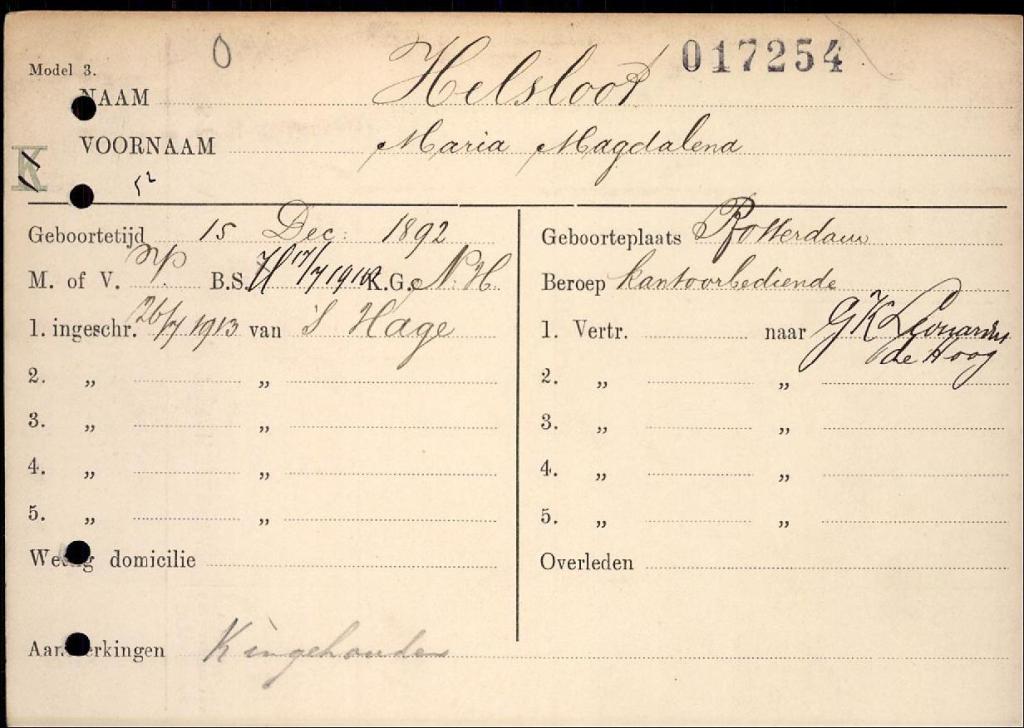 0
017254
Model 3.
NAAM Helsloot
VOORNAAM Maria Magdalena
K
52
Geboortetijd 15 Dec. 1892
M. of V. V. B.S. H 17/7 1918 K.G. N.H.
1. ingeschr. 26/7 1913 van 's Hage
2. „ „
3. „ „
4. „ „
5. „ „
Wettig domicilie
Geboorteplaats Rotterdam
Beroep kantoorbediende
1. Vertr. naar GK Leonardus
de Hoog
2. „ „
3. „ „
4. „ „
5. „ „
Overleden
Aanmerkingen K ingehouden